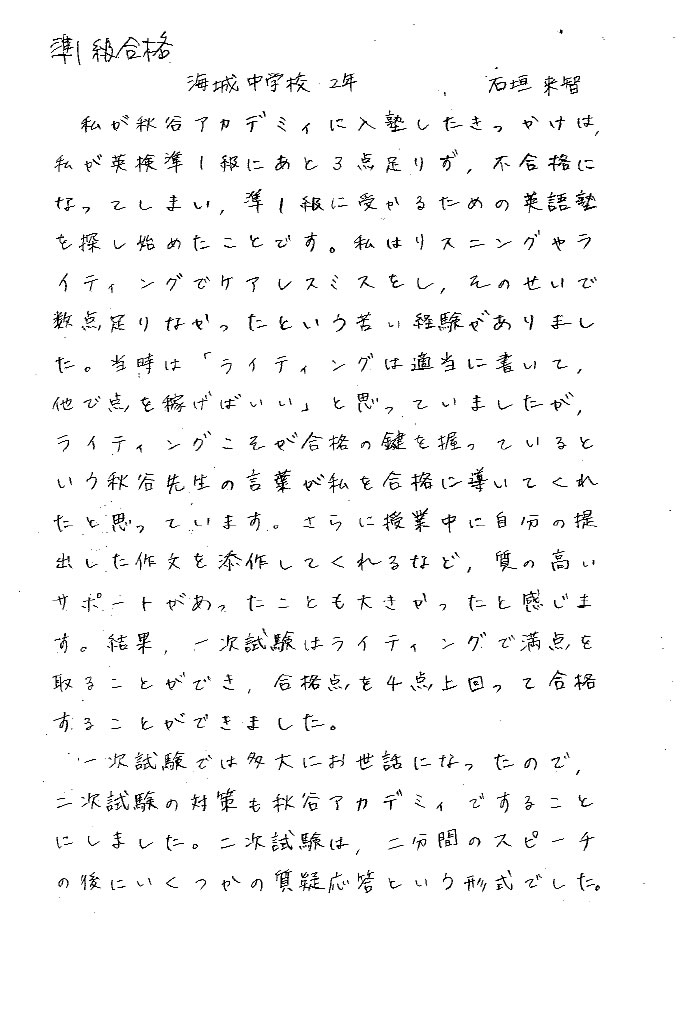 準1級合格
海城中学校 2年 石垣 来智
私が秋谷アカデミィに入塾したきっかけは、
私が英検準1級にあと3点足りず、不合格に
なってしまい、準1級に受かるための英語塾
を探し始めたことです。私はリスニングやラ
イティングでケアレスミスをし、そのせいで
数点足りなかったという苦い経験がありまし
た。当時は「ライティングは適当に書いて、
他で点を稼げばいい」と思っていましたが、
ライティングこそが合格の鍵を握っていると
いう秋谷先生の言葉が私を合格に導いてくれ
たと思っています。さらに授業中に自分の提
出した作文を添作してくれるなど、質の高い
サポートがあったことも大きかったと感じま
す。結果、一次試験はライティングで満点を
取ることができ、合格点を4点上回って合格
することができました。
一次試験では多大にお世話になったので、
二次試験の対策も秋谷アカデミィですること
にしました。二次試験は、二分間のスピーチ
の後にいくつかの質疑応答という形式でした。